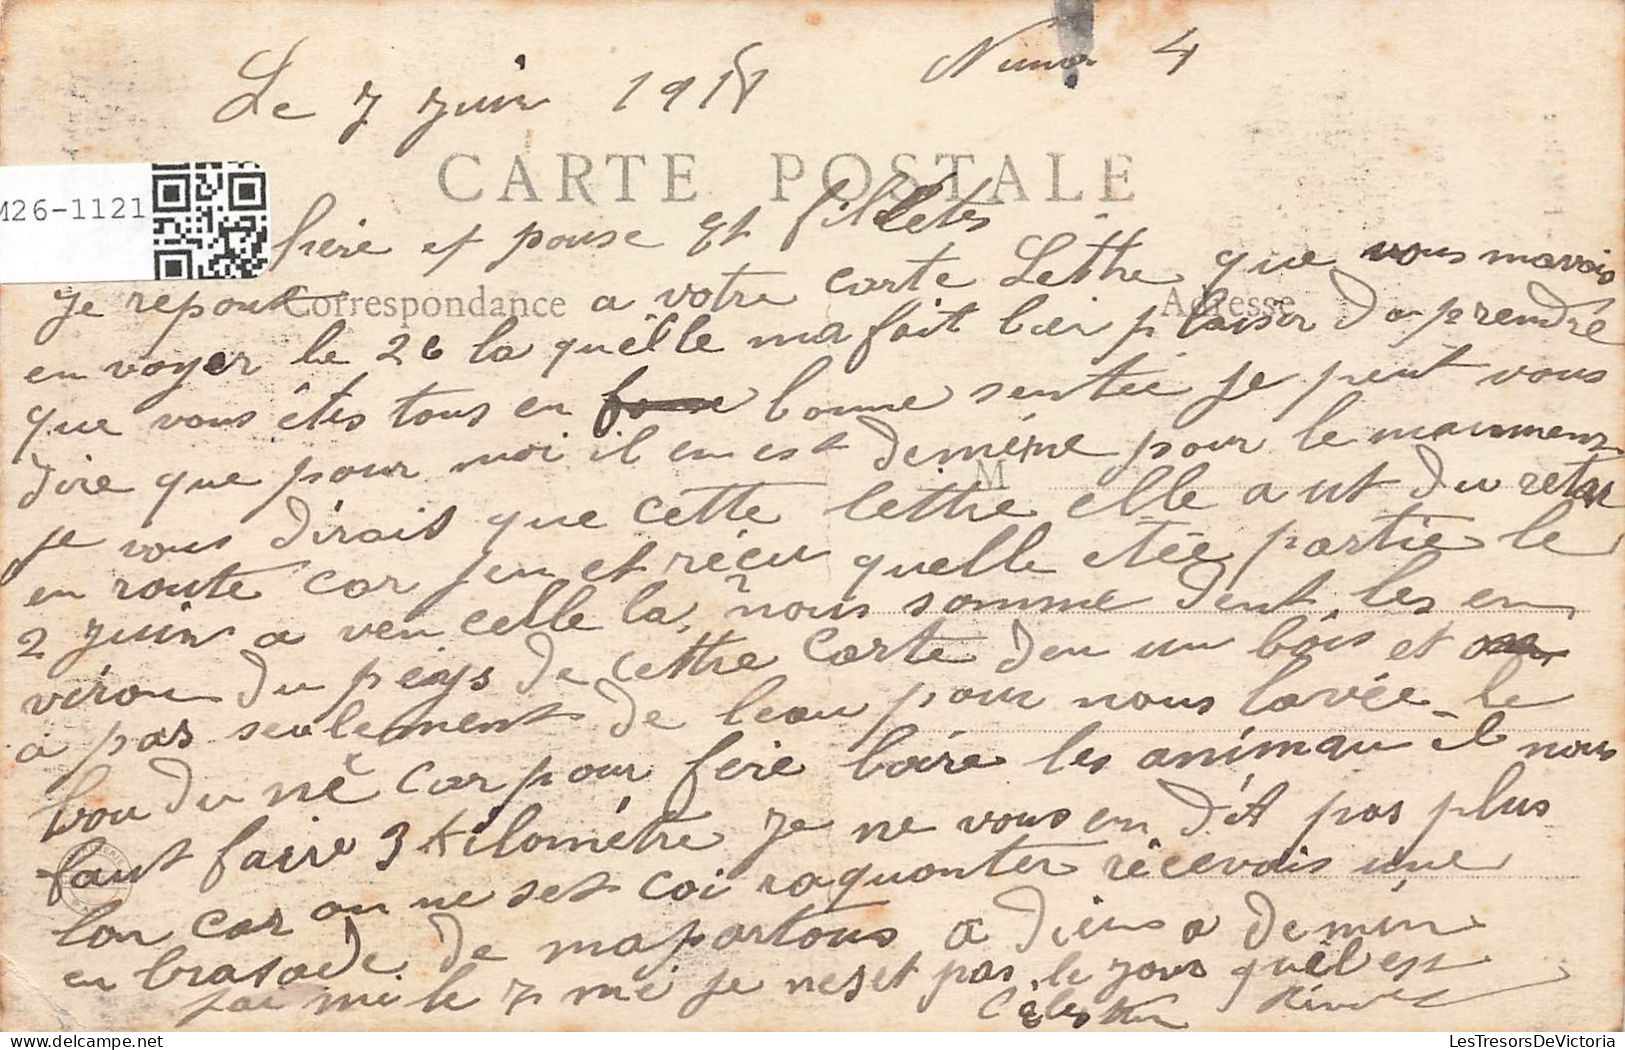 Le 7 juin 1918 4
CARTE POSTALE
M26-1121
frère et pouse Et filletes
je repont a votre carte Lettre que vous mavais
Correspondance Adresse
en voyer le 26 la quélle ma fait bien plaisir daprendre
que vous êtes tous en bonne sentée je peut vous
dire que pour moi il en est demême pour le maumenz
M
je vous dirais que cette lettre elle a ut du retar
en route car jen et réçu quelle etée partie le
2 juin a ven celle la, nous somme dent les en
virou du péiys de cette carte den un bois et
a pas seulement de leau pour nous lavée le
bou du né car pour fere boire les animau il nous
faut faire 3 kilométre je ne vous en dit pas plus
lon car on ne set coi raquonter récevais une
en brasade de mapartous a dieu a demin
jai mi le 7 mé je neset pas le jous quél est
Célestin
LesTresorsDeVictoria